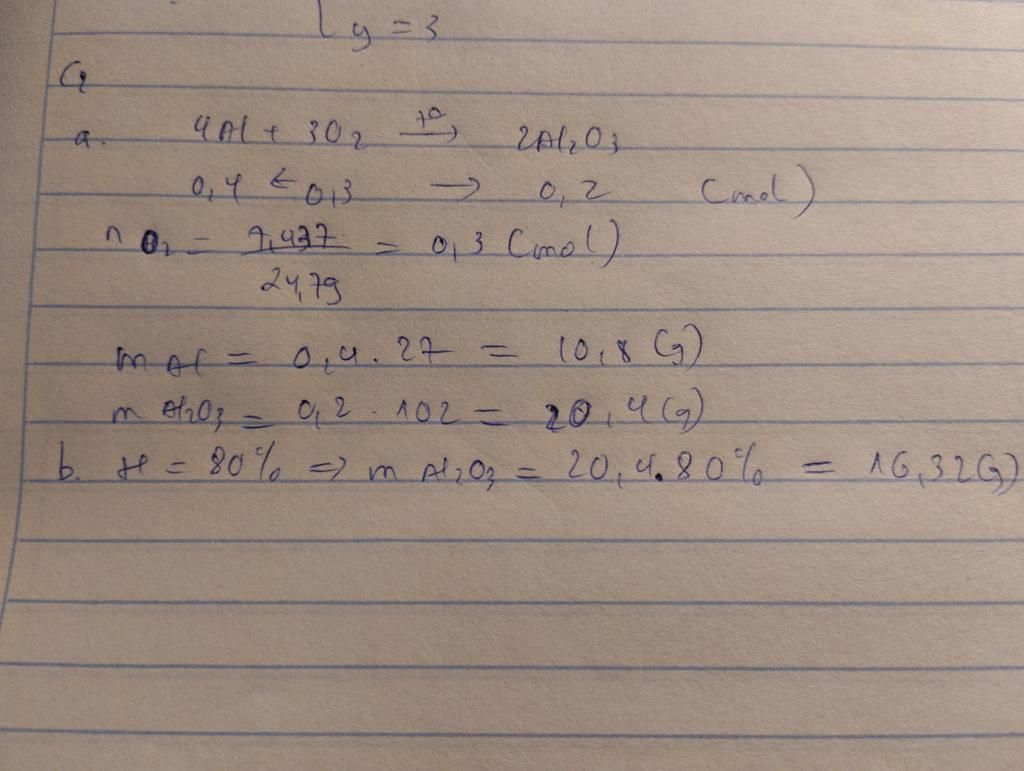 y = 3
a. 4Al + 3O₂ →(t°) 2Al₂O₃
0,4 ← 0,3 → 0,2 (mol)
n O₂ = 7,437/24,79 = 0,3 (mol)
m Al = 0,4 . 27 = 10,8 (g)
m Al₂O₃ = 0,2 . 102 = 20,4 (g)
b. H = 80% => m Al₂O₃ = 20,4.80% = 16,32(g)